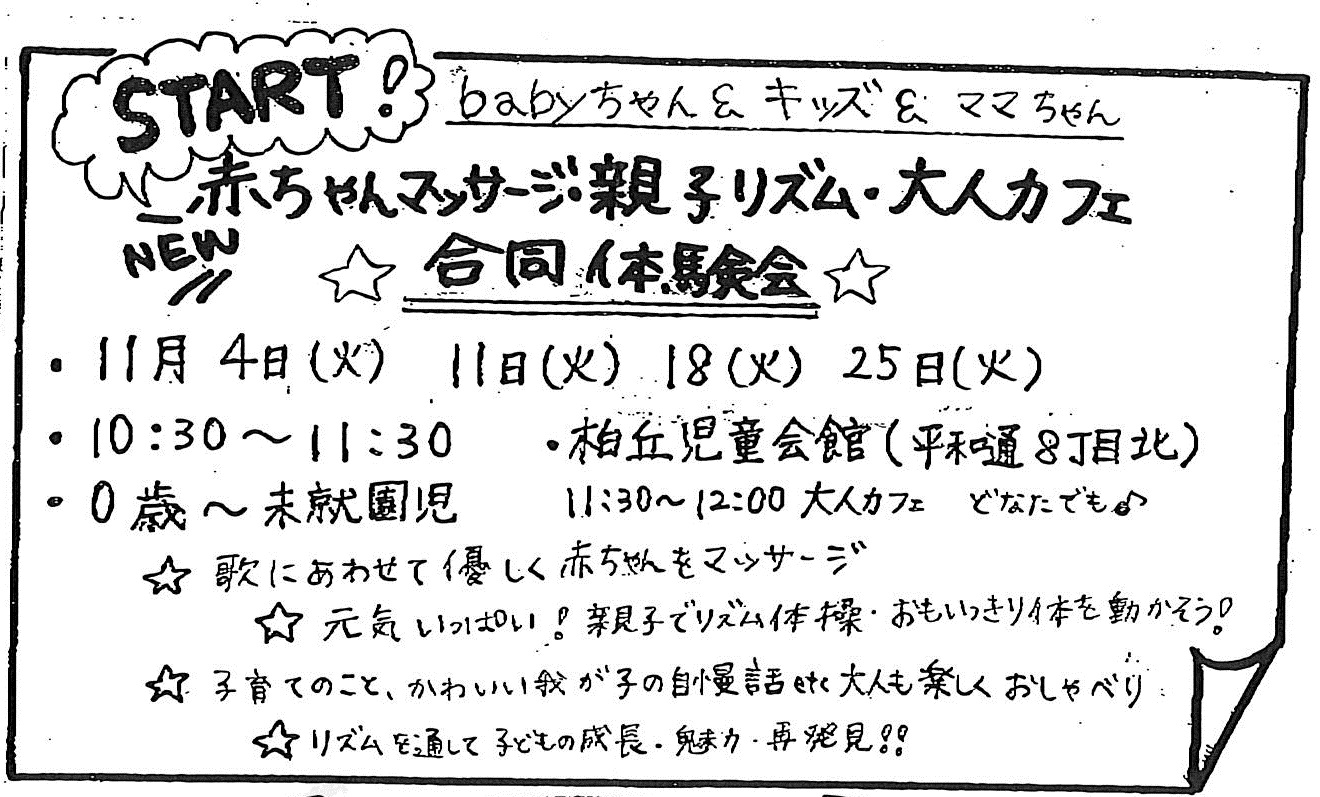 START! babyちゃん & キッズ & ママちゃん
赤ちゃんマッサージ・親子リズム・大人カフェ
NEW
☆ 合同体験会 ☆
・11月 4日(火) 11日(火) 18(火) 25日(火)
・10:30〜11:30 ・柏丘児童会館(平和通8丁目北)
・0歳〜未就園児 11:30〜12:00 大人カフェ どなたでも♪
☆ 歌にあわせて優しく赤ちゃんをマッサージ
☆ 元気いっぱい!親子でリズム体操・おもいっきり体を動かそう!
☆ 子育てのこと、かわいい我が子の自慢話etc大人も楽しくおしゃべり
☆ リズムを通して子どもの成長・魅力・再発見!!